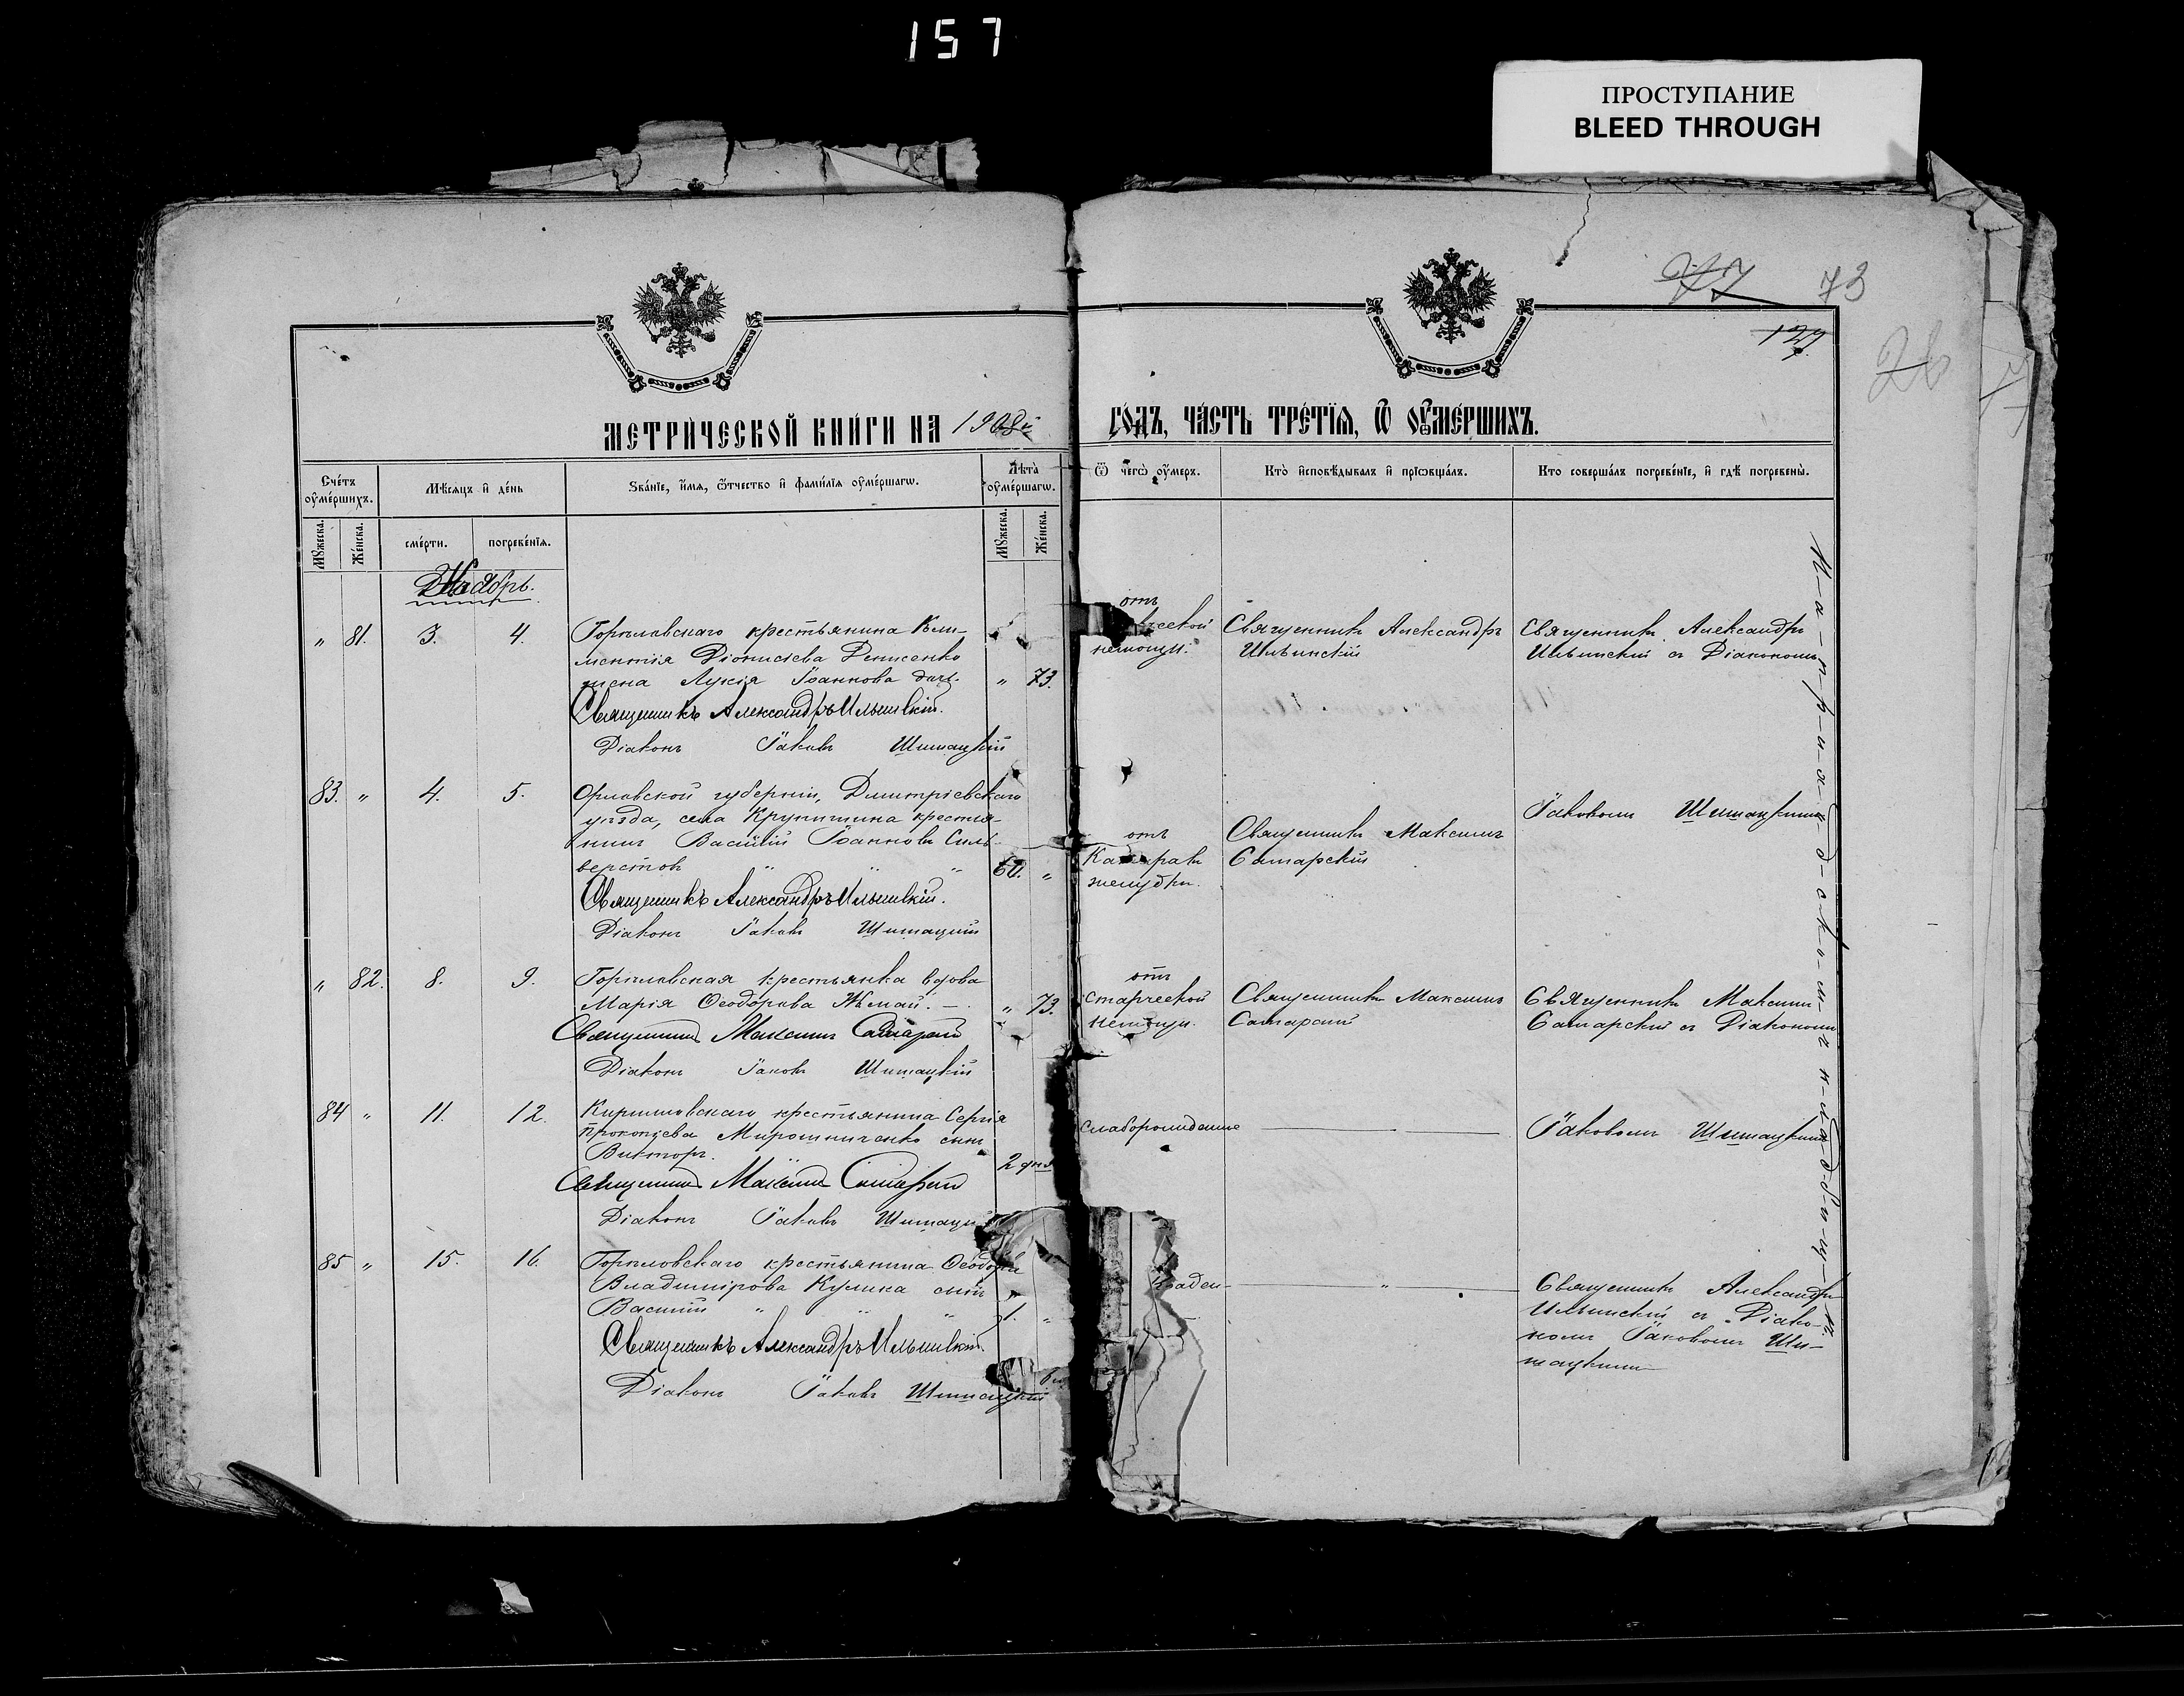 157
ПРОСТУПАНИЕ
BLEED THROUGH
77 73
127
26
МЕТРИЧЕСКОЙ КНИГИ НА 1908й ГОДЪ, ЧАСТЬ ТРЕТІЯ, Ѿ ОУМЕРШИХЪ.
Счетъ оумершихъ.
Мѣсяцъ и день
Званіе, имя, ѿтчество и фамилія оумершагѡ.
Лѣта оумершагѡ.
Ѿ чегѡ оумеръ.
Кто исповѣдывалъ и пріѡбщалъ.
Кто совершалъ погребеніе, и гдѣ погребены.
Мужеска.
Женска.
смерти.
погребенія.
Мужеска.
Женска.
Ноябрь.
" 81. 3. 4.
Гориловскаго крестьянина Кли-
ментія Діонисіева Денисенко
жена Лукія Іоаннова дочь. " 73.
отъ
ческой
немощи.
Священникъ Александръ
Ильинскій
Священникъ Александръ
Ильинскій съ Діакономъ
Священникъ Александръ Ильинскій.
Діаконъ Іаковъ Шишацкій
83. " 4. 5.
Орловской губерніи, Дмитріевскаго
уѣзда, села Крупишина крестья-
нинъ Василій Іоанновъ Силь-
верстовъ " " " 60. "
отъ
Катарра
желудка.
Священникъ Максимъ
Самарскій
Іаковомъ Шишацкимъ
Священникъ Александръ Ильинскій.
Діаконъ Іаковъ Шишацкій
" 82. 8. 9.
Гориловская крестьянка вдова
Марія Ѳеодорова Жмай. — " 73.
отъ
старческой
немощи.
Священникъ Максимъ
Самарскій
Священникъ Максимъ
Самарскій съ Діакономъ
Священникъ Максимъ Самарскій
Діаконъ Іаковъ Шишацкій
84 " 11. 12.
Кирилловскаго крестьянина Сергія
Прокопіева Мирошниченко сынъ
Викторъ. 2 дня
Слаборожденіе
Іаковомъ Шишацкимъ
Священникъ Максимъ Самарскій
Діаконъ Іаковъ Шишацкій
85 " 15. 16.
Гориловскаго крестьянина Ѳеодора
Владимірова Кулика сынъ
Василій " " " 1. "
"
Священникъ Александръ
Ильинскій съ Діако-
номъ Іаковомъ Ши-
шацкимъ
Священникъ Александръ Ильинскій.
Діаконъ Іаковъ Шишацкій
На приходскомъ кладбищѣ